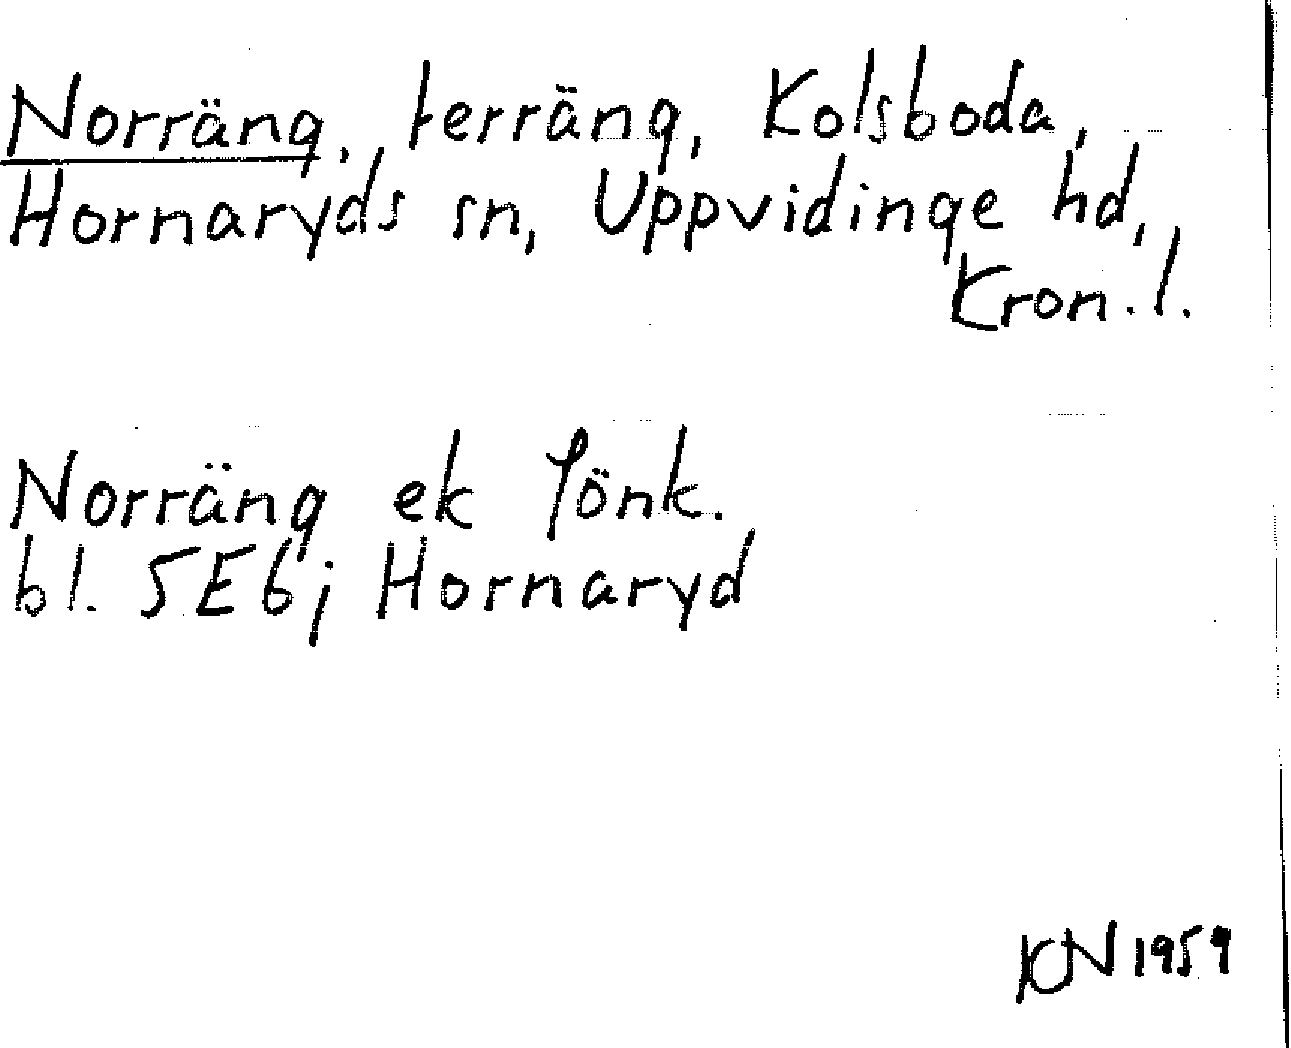 Norräng, terräng, Kolsboda,
Hornaryds sn, Uppvidinge hd,
Kron. l.
Norräng ek Jönk.
bl. 5E6j Hornaryd
KN 1959